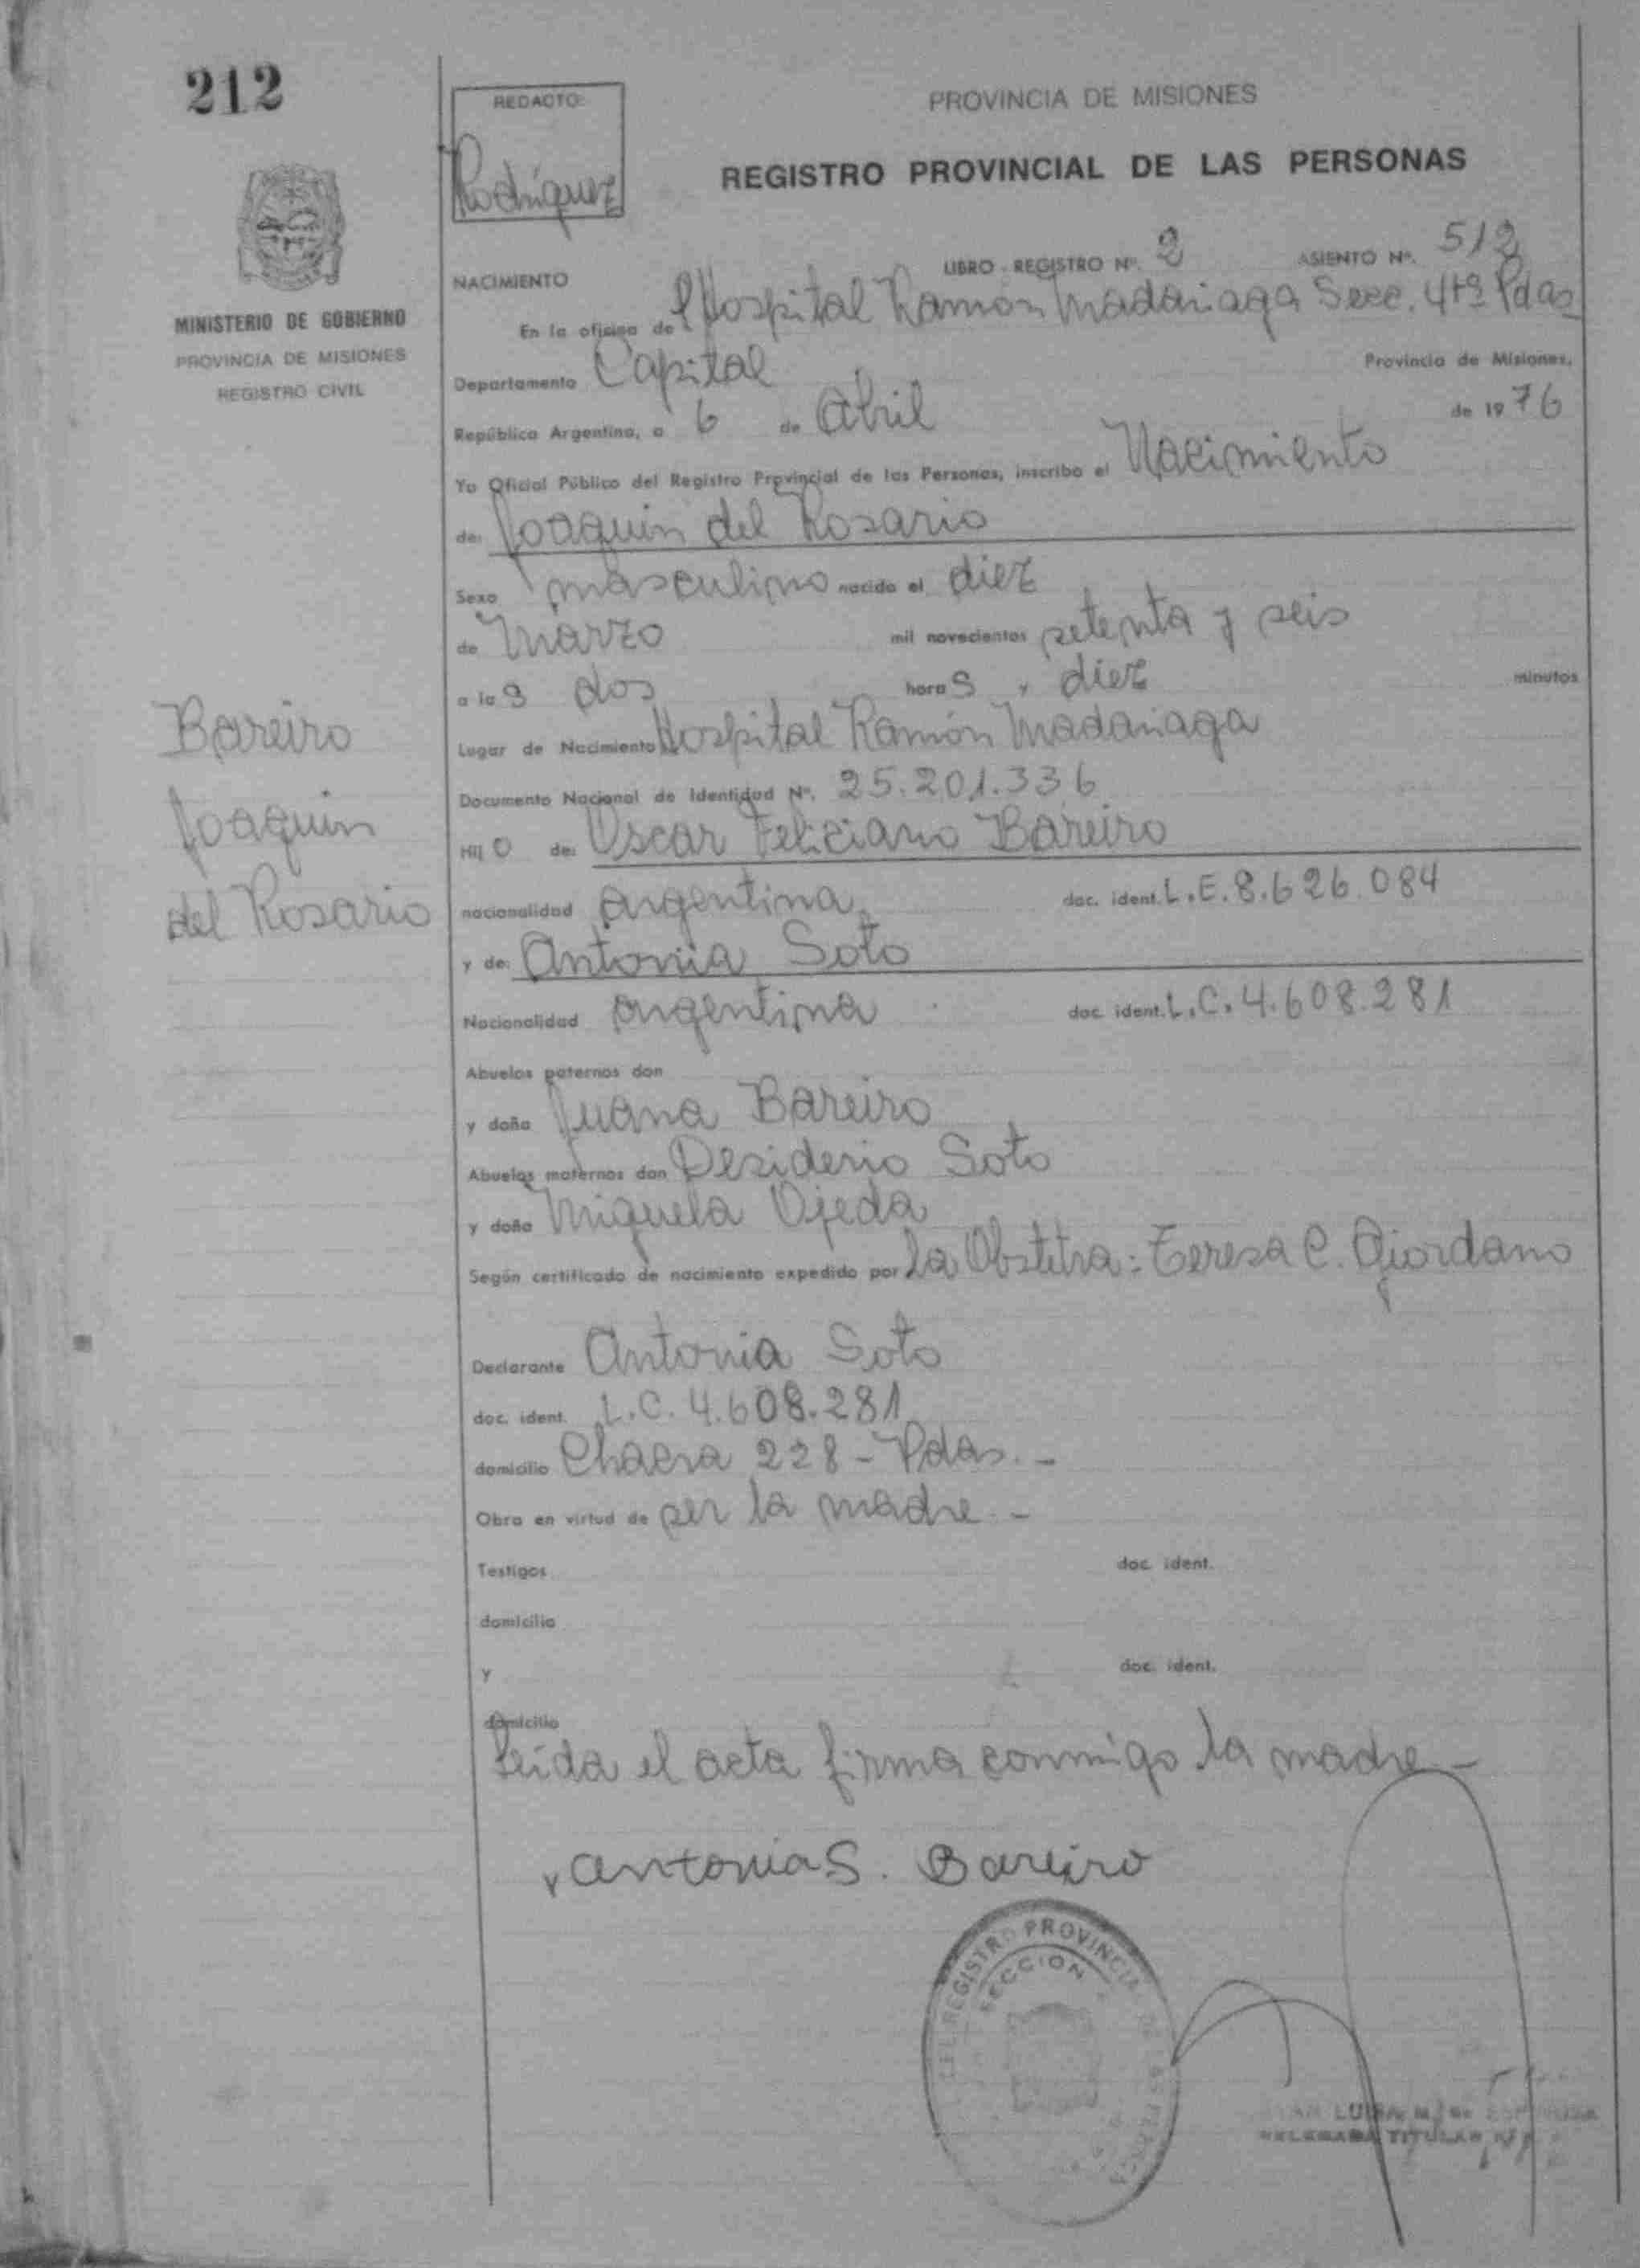 212
REDACTO:
Rodríguez
PROVINCIA DE MISIONES
REGISTRO PROVINCIAL DE LAS PERSONAS
MINISTERIO DE GOBIERNO
PROVINCIA DE MISIONES
REGISTRO CIVIL
LIBRO - REGISTRO Nº. 2 ASIENTO Nº. 512
NACIMIENTO
En la oficina de Hospital Ramón Madariaga Secc. 4tª Pdas
Departamento Capital Provincia de Misiones,
República Argentina, a 6 de Abril de 1976
Yo Oficial Público del Registro Provincial de las Personas, inscribo el Nacimiento
de: Joaquin del Rosario
Sexo masculino nacido el diez
de Marzo mil novecientos setenta y seis
a las dos horas y diez minutos
Lugar de Nacimiento Hospital Ramón Madariaga
Documento Nacional de Identidad Nº. 25.201.336
Hijo de: Oscar Feliciano Bareiro
nacionalidad argentina doc. ident. L.E. 8.626.084
y de: Antonia Soto
Nacionalidad argentina doc. ident. L.C. 4.608.281
Bareiro
Joaquin
del Rosario
Abuelos paternos don
y doña Juana Bareiro
Abuelos maternos don Desiderio Soto
y doña Miguela Ojeda
Según certificado de nacimiento expedido por la Obstetra: Teresa C. Giordano
Declarante Antonia Soto
doc. ident. L.C. 4.608.281
domicilio Chacra 228 - Pdas. -
Obra en virtud de ser la madre. -
Testigos doc. ident.
domicilio
y doc. ident.
domicilio
Leída el acta firma conmigo la madre -
Antonia S. Bareiro
REGISTRO PROVINCIAL
SECCION
DELEGADA TITULAR